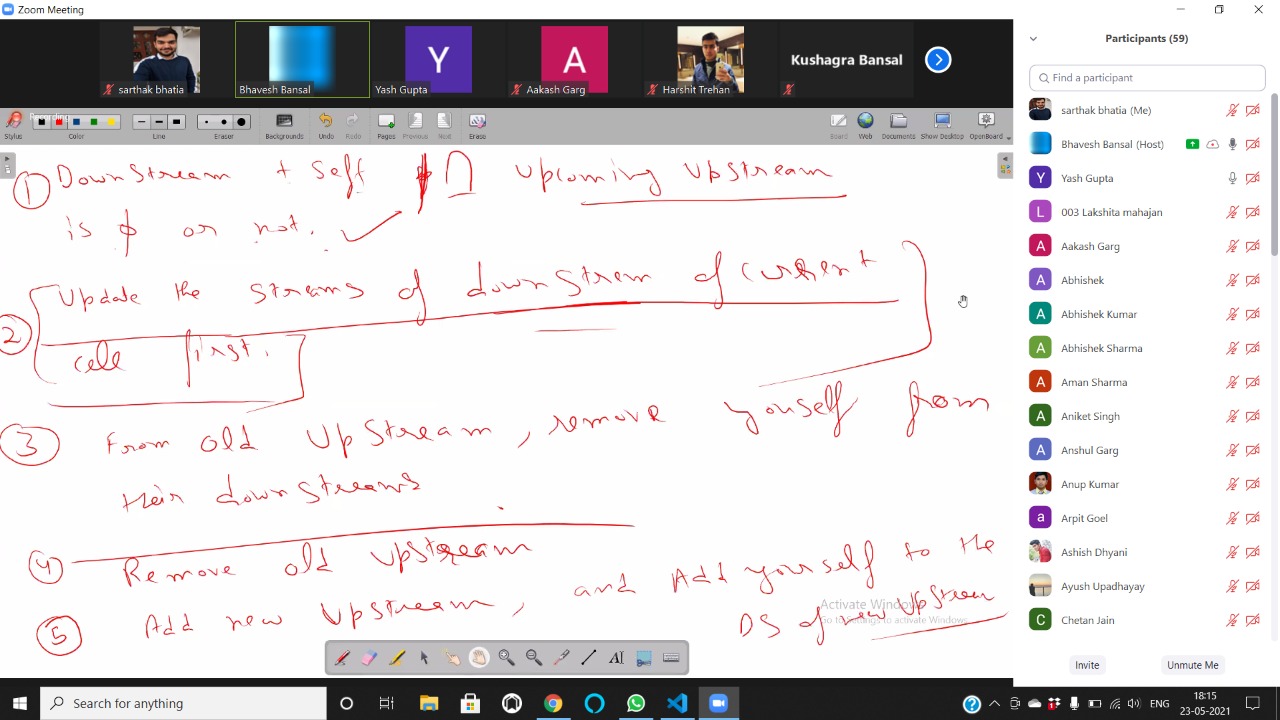 Zoom Meeting
sarthak bhatia
Bhavesh Bansal
Y
Yash Gupta
A
Aakash Garg
Harshit Trehan
Kushagra Bansal
Recording
Stylus Color Line Eraser Backgrounds Undo Redo Pages Previous Next Erase Board Web Documents Show Desktop OpenBoard
① DownStream + Self ∩ upcoming upstream
is ϕ or not.
② Update the streams of downStream of current
cell first.
③ From old UpStream, remove youself from
their downstreams
④ Remove old upstream
⑤ Add new Upstream, and Add yourself to the
DS of new UpStream
Activate Windows
Go to Settings to activate Windows.
Participants (59)
Find a participant
sarthak bhatia (Me)
Bhavesh Bansal (Host)
Y Yash Gupta
L 003 Lakshita mahajan
A Aakash Garg
A Abhishek
A Abhishek Kumar
A Abhishek Sharma
A Aman Sharma
A Aniket Singh
A Anshul Garg
Anup Kumar
a Arpit Goel
Ashish Dhyani
Ayush Upadhayay
C Chetan Jain
Invite Unmute Me
Search for anything
ENG
18:15
23-05-2021